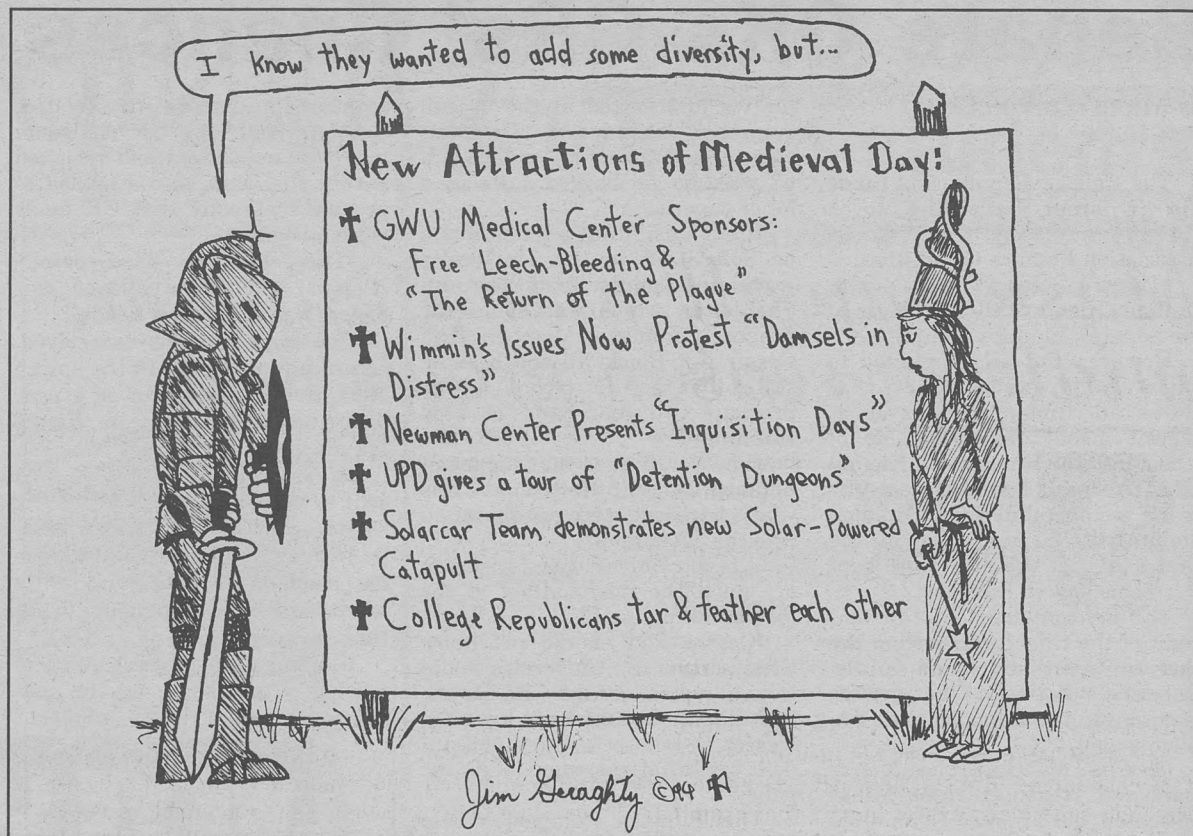 I know they wanted to add some diversity, but...
New Attractions of Medieval Day!
GWU Medical Center Sponsors:
Free Leech-Bleeding &
"The Return of the Plague"
Wimmin's Issues Now Protest "Damsels in
Distress"
Newman Center Presents "Inquisition Days"
UPD gives a tour of "Detention Dungeons"
Solarcar Team demonstrates new Solar-Powered
Catapult
College Republicans tar & feather each other
Jim Geraghty ©94